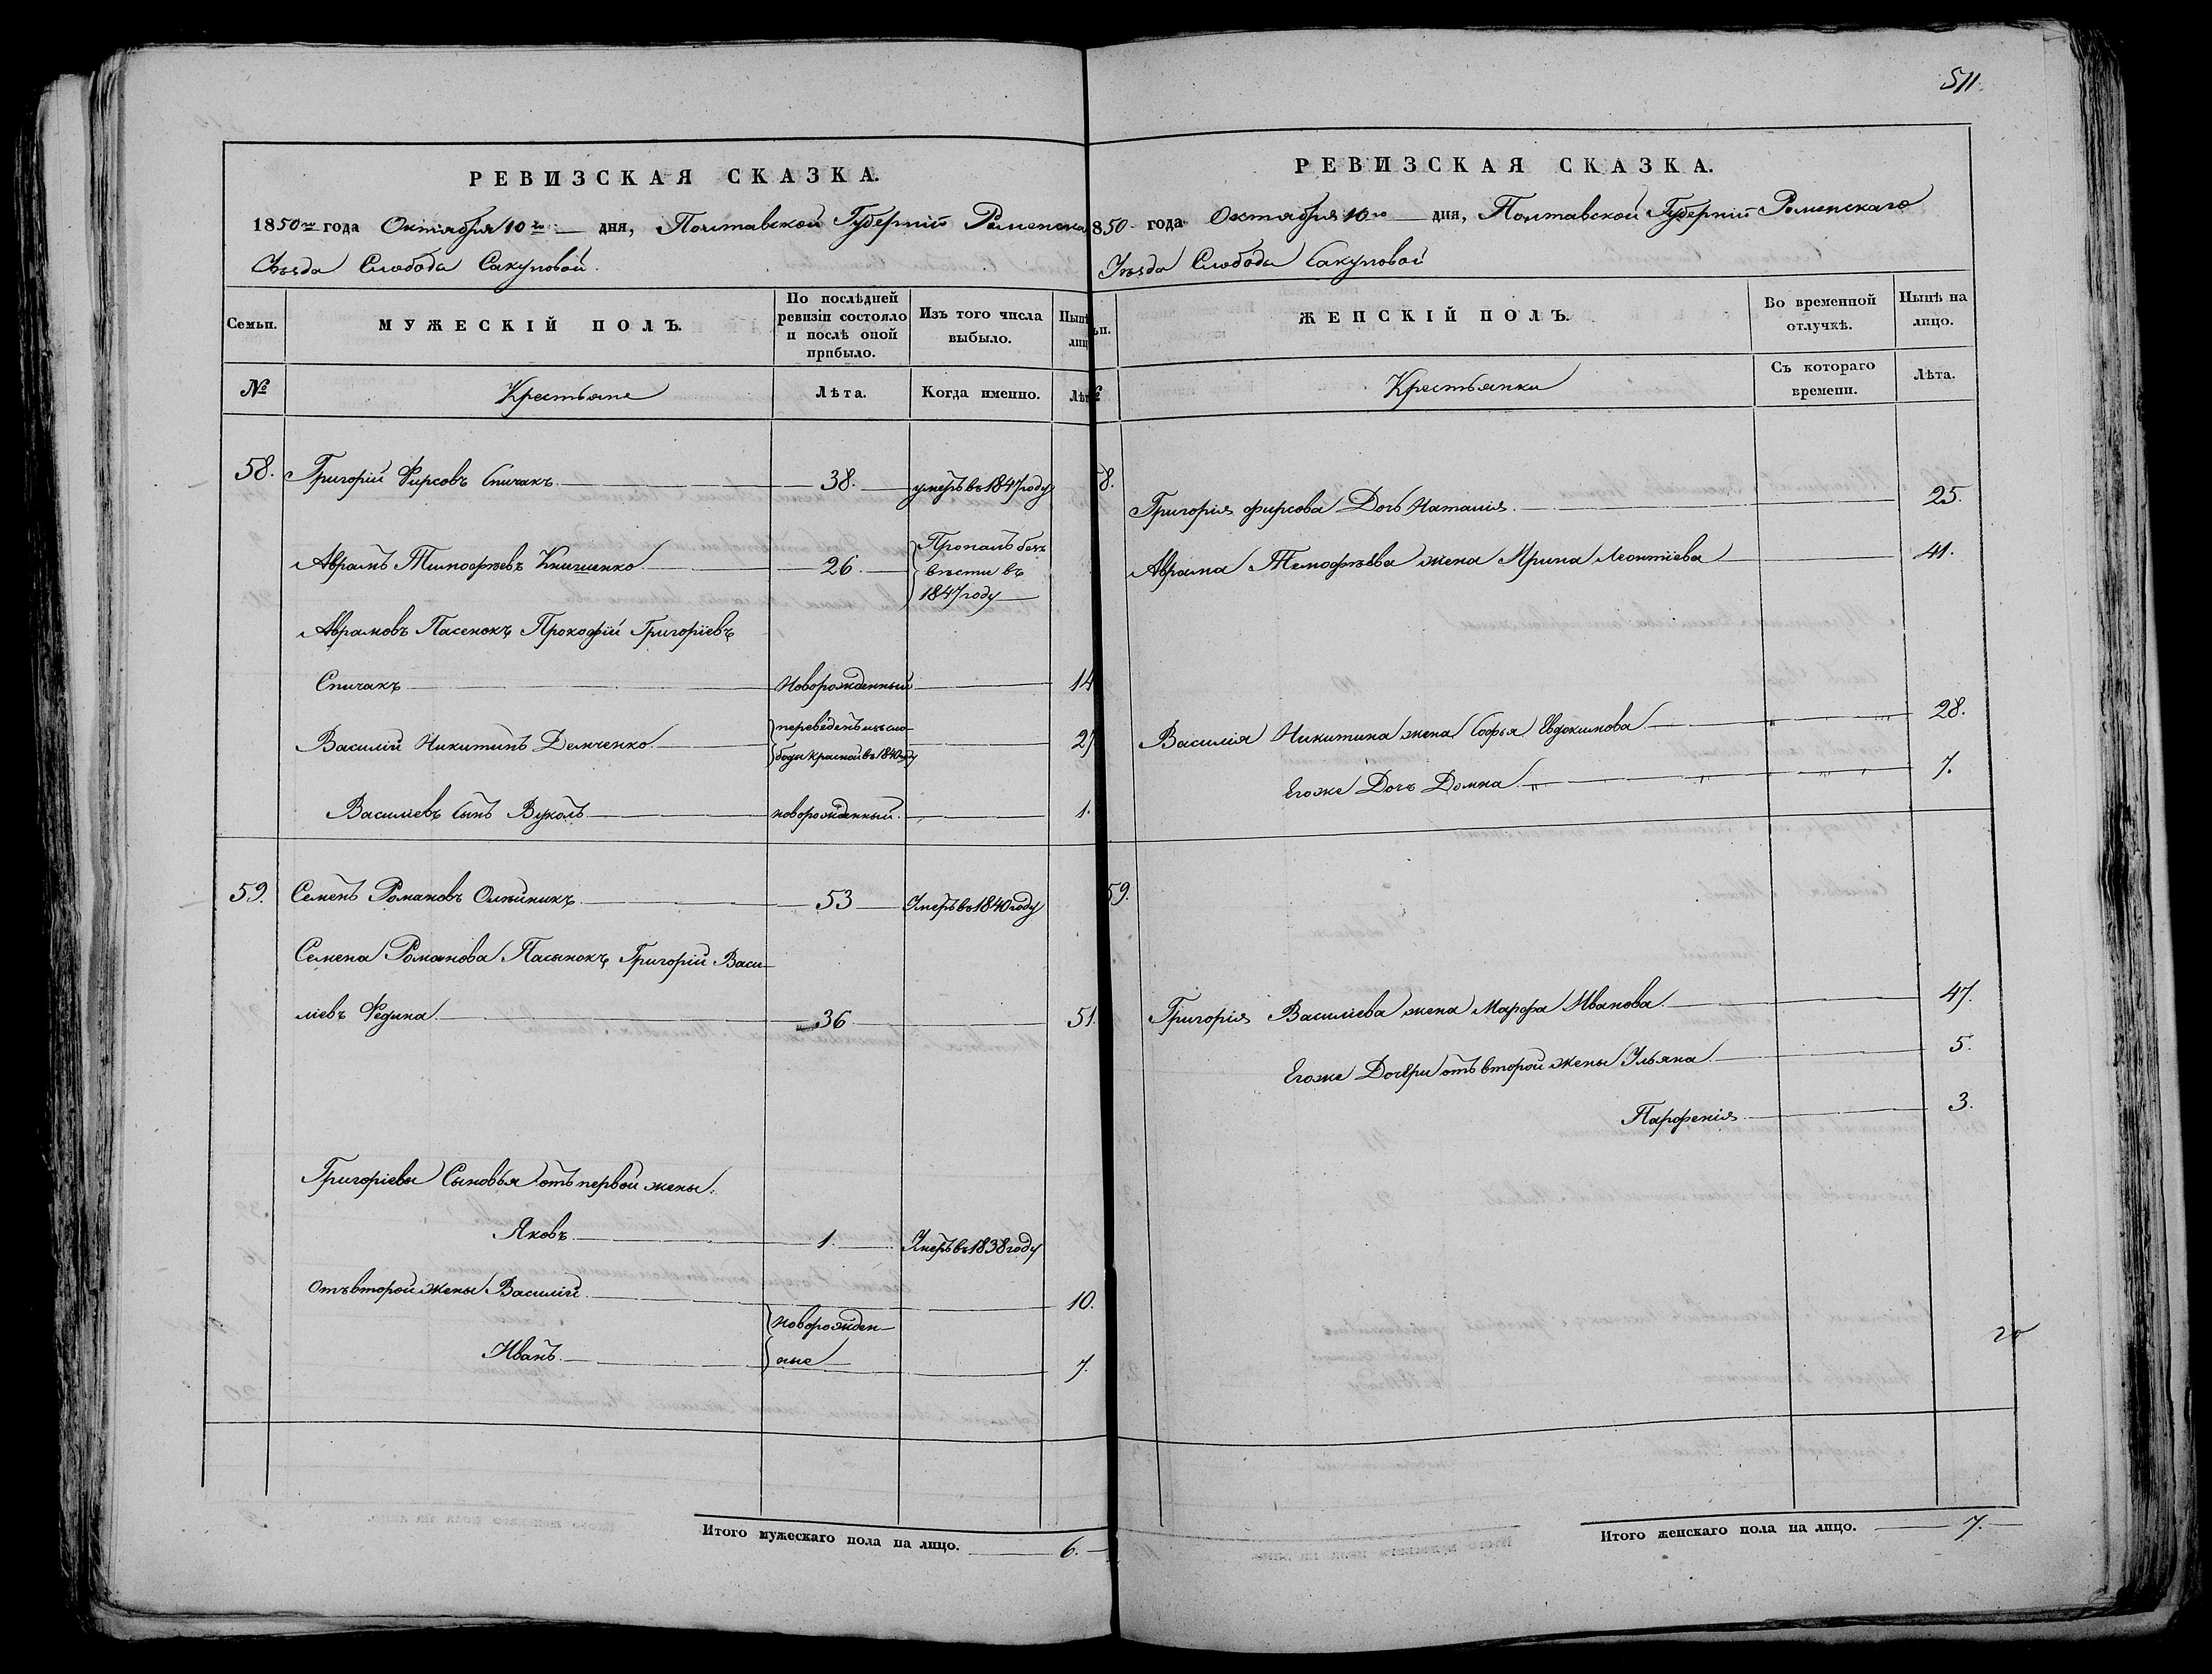 511.
РЕВИЗСКАЯ СКАЗКА.
1850го года Октября 10го дня, Полтавской Губерніи Роменска
Уѣзда Слободы Сакуновой.
Семьи.
МУЖЕСКІЙ ПОЛЪ.
По послѣдней ревизіи состояло и послѣ оной прибыло.
Изъ того числа выбыло.
Нынѣ
лиц
№
Крестьяне
Лѣта.
Когда именно.
Лѣт
58. Григорій Фирсовъ Спичакъ 38. умеръ въ 1847 году
Аврамъ Тимофѣевъ Книшенко 26 Пропалъ безъ
вѣсти въ
1847 году
Аврамовъ Пасенокъ Прокофій Григоріевъ
Спичакъ Новорожденный 14
Василій Никитинъ Демченко переведенъ изъ сло-
боды Красной въ 1840 году 27
Василіевъ Сынъ Вуколъ новорожденный. 1.
59. Семенъ Романовъ Олѣйникъ 53 Умеръ въ 1840 году
Семена Романова Пасынокъ Григорій Васи-
ліевъ Федина 36 51.
Григоріевы Сыновья отъ первой жены:
Яковъ 1. Умеръ въ 1838 году
Отъ второй жены Василій 10.
Новорожден-
Иванъ ные 7.
Итого мужескаго пола на лицо. 6.
РЕВИЗСКАЯ СКАЗКА.
850 года Октября 10го дня, Полтавской Губерніи Роменскаго
Уѣзда Слободы Сакуновой
ьи.
ЖЕНСКІЙ ПОЛЪ.
Во временной отлучкѣ.
Нынѣ на лицо.
№
Крестьянки
Съ котораго времени.
Лѣта.
58.
Григорія Фирсова Дочь Наталія 25.
Аврама Тимофѣева жена Ирина Леонтіева 41.
Василія Никитина жена Софья Евдокимова 28.
Егоже Дочь Домна 7.
59.
Григорія Василіева жена Марфа Иванова 47.
Егоже Дочери отъ второй жены Ульяна 5.
Парфенія 3.
Итого женскаго пола на лицо. 7.